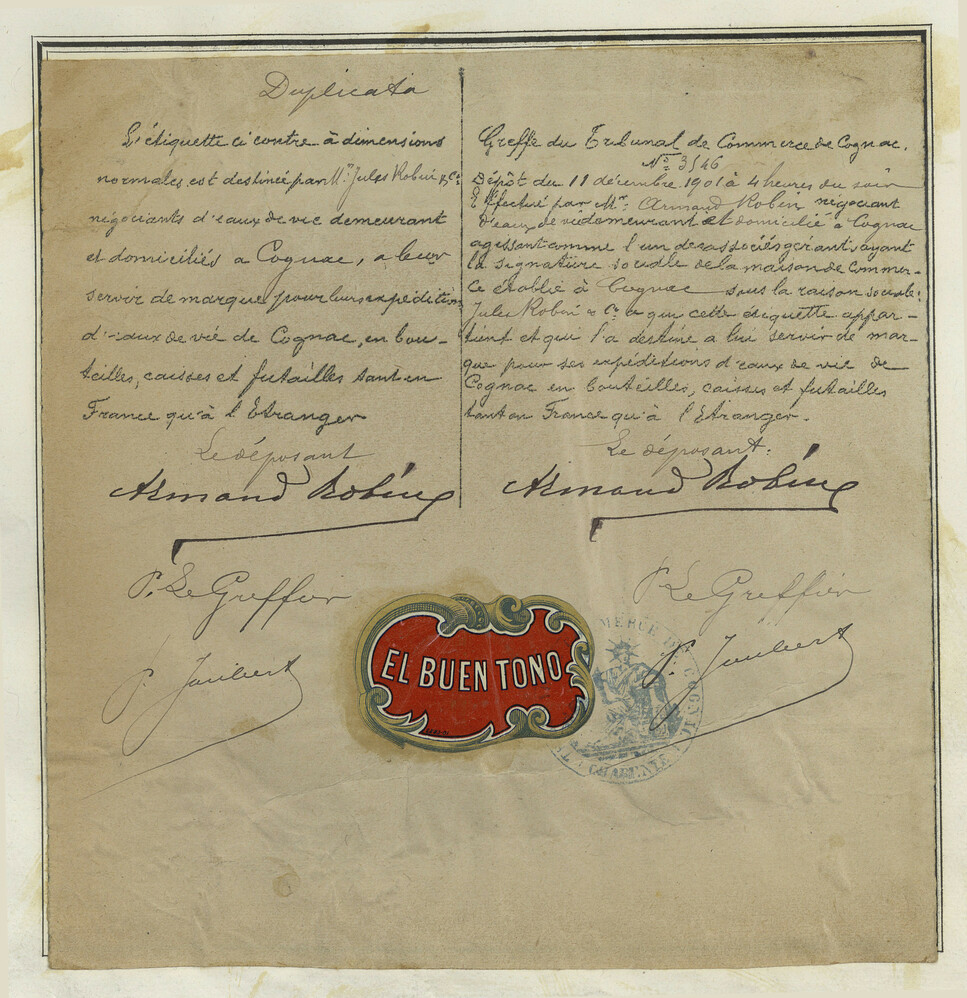 Duplicata
L'étiquette ci contre à dimensions
normales, est destinée par Mrs Jules Robin & Co
négociants d'eaux de vie demeurant
et domiciliés a Cognac, a leur
servir de marque pour leurs expéditions
d'eaux de vie de Cognac, en bou-
teilles, caisses et futailles tant en
France qu'à l'Etranger
Le déposant
Armand Robin
P. Le Greffier
P. Joubert
Greffe du Tribunal de Commerce de Cognac.
No 3546
Dépôt du 11 décembre 1901 à 4 heures du soir
Effectué par Mr Armand Robin négociant
d'eaux de vie demeurant et domicilié à Cognac
agissant comme l'un des associés gerants, ayant
la signature sociale de la maison de Commer-
ce établie à Cognac sous la raison sociale:
Jules Robin & Co a qui cette étiquette appar-
tient et qui l'a destiné a lui servir de mar-
que pour ses expéditions d'eaux de vie de
Cognac en bouteilles, caisses et futailles
tant en France qu'à l'Etranger.
Le déposant:
Armand Robin
P. Le Greffier
P. Joubert
EL BUEN TONO
COMMERCE DE COGNAC
CHARENTE